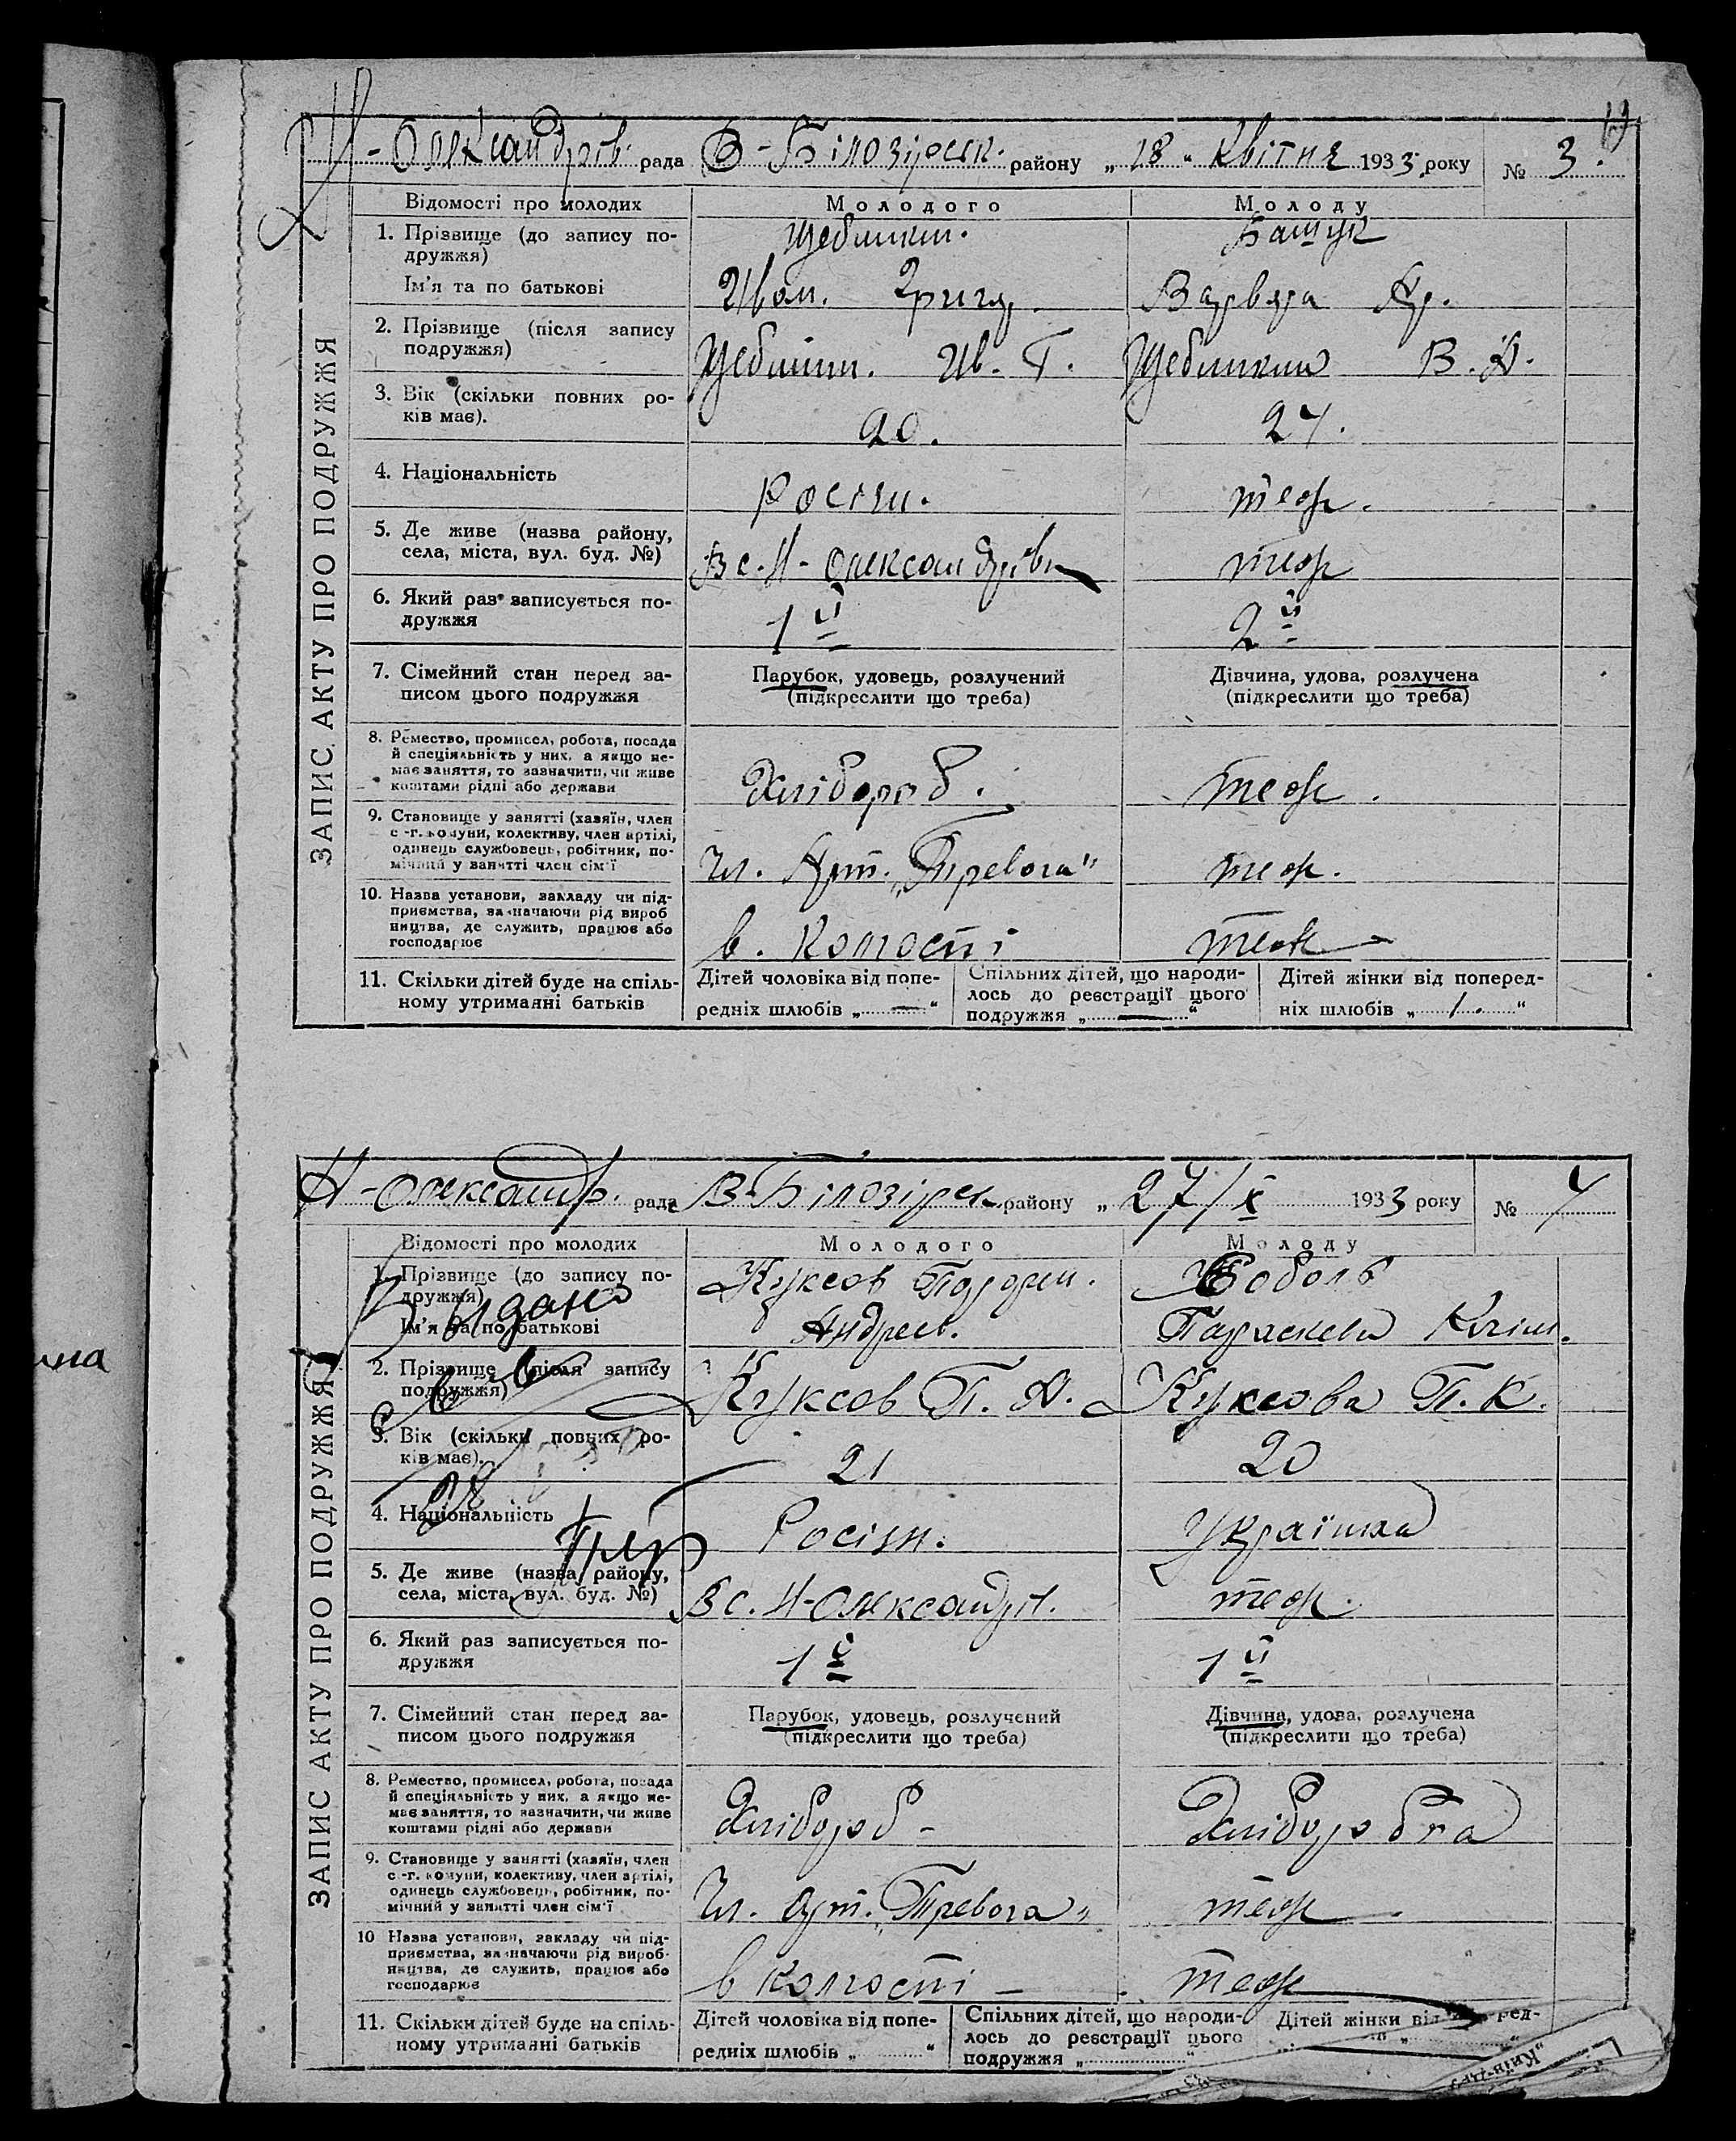 Н-Олександрів. рада В-Білозірськ. району „18" Квітня 1933 року № 3.
ЗАПИС АКТУ ПРО ПОДРУЖЖЯ
Відомості про молодих Молодого Молоду
1. Прізвище (до запису по-
дружжя) Бащук
Ім'я та по батькові Іван. Григор. Варвара
2. Прізвище (після запису
подружжя) Ив. Г. В. А.
3. Вік (скільки повних ро-
ків має). 20. 24.
4. Національність Росіян. теж.
5. Де живе (назва району,
села, міста, вул. буд. №) В с. Н-Олександрівц теж
6. Який раз записується по-
дружжя 1й 2й
7. Сімейний стан перед за-
писом цього подружжя
Парубок, удовець, розлучений
(підкреслити що треба)
Дівчина, удова, розлучена
(підкреслити що треба)
8. Ремество, промисел, робота, посада
й спеціяльність у них, а якщо не-
має заняття, то зазначити, чи живе
коштами рідні або держави
Хлібороб. теж.
9. Становище у занятті (хазяїн, член
с.-г. комуни, колективу, член артілі,
одинець службовець, робітник, по-
мічний у занятті член сім'ї
Чл. Арт. „Тревога" теж.
10. Назва установи, закладу чи під-
приємства, зазначаючи рід вироб
ництва, де служить, працює або
господарює
в. Колгоспі теж
11. Скільки дітей буде на спіль-
ному утриманні батьків
Дітей чоловіка від попе-
редніх шлюбів „ — "
Спільних дітей, що народи-
лось до реєстрації цього
подружжя „ — "
Дітей жінки від поперед-
ніх шлюбів „ 1. "
Н-Олександр. рада В-Білозірськ району „27/X 1933 року № 4
ЗАПИС АКТУ ПРО ПОДРУЖЖЯ
Відомості про молодих Молодого Молоду
1. Прізвище (до запису по-
дружжя) Куксов Соболь
Ім'я та по батькові Андреев. Параскева Клим.
Видано
2. Прізвище (після запису
подружжя) Куксов П. А. Куксова П. К.
3. Вік (скільки повних ро-
ків має). 21 20
4. Національність Росіян. Українка
5. Де живе (назва району,
села, міста, вул. буд. №) В с. Н-Олександрів. теж.
6. Який раз записується по-
дружжя 1й 1й
7. Сімейний стан перед за-
писом цього подружжя
Парубок, удовець, розлучений
(підкреслити що треба)
Дівчина, удова, розлучена
(підкреслити що треба)
8. Ремество, промисел, робота, посада
й спеціяльність у них, а якщо не-
має заняття, то зазначити, чи живе
коштами рідні або держави
Хлібороб - Хліборобка
9. Становище у занятті (хазяїн, член
с.-г. комуни, колективу, член артілі,
одинець службовець, робітник, по-
мічний у занятті член сім'ї
Чл. арт. „Тревога" теж.
10 Назва установи, закладу чи під-
приємства, зазначаючи рід вироб-
ництва, де служить, працює або
господарює
в колгоспі — теж
11. Скільки дітей буде на спіль-
ному утриманні батьків
Дітей чоловіка від попе-
редніх шлюбів „ "
Спільних дітей, що народи-
лось до реєстрації цього
подружжя „ "
Дітей жінки від ред-